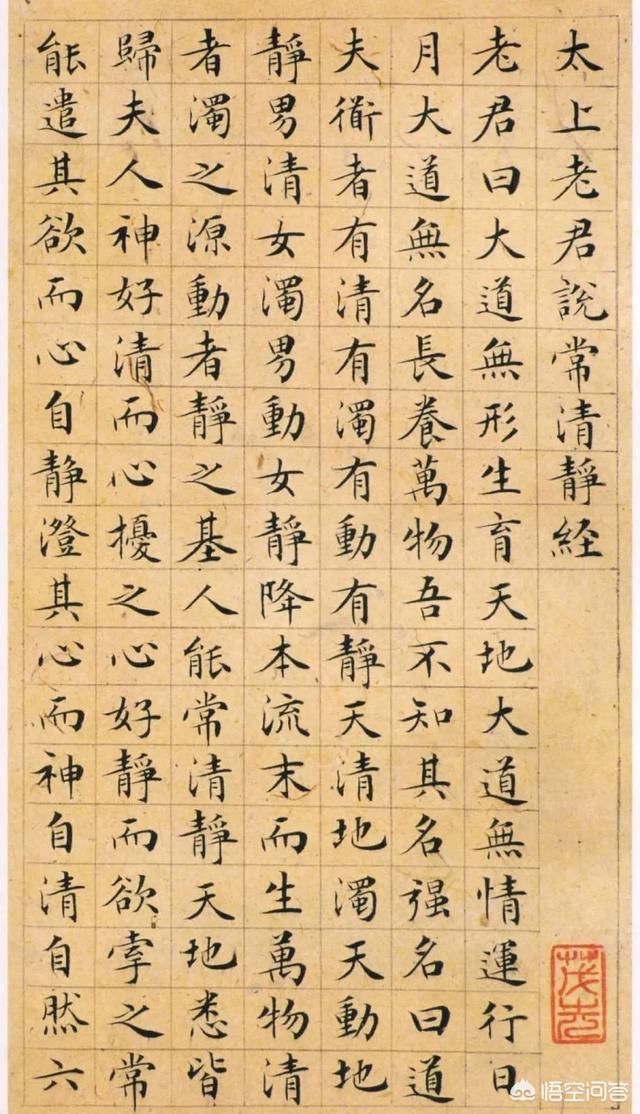 太上老君說常清靜経
老君曰大道無形生育天地大道無情運行日
月大道無名長養萬物吾不知其名强名曰道
夫衜者有清有濁有動有靜天清地濁天動地
靜男清女濁男動女靜降本流末而生萬物清
者濁之源動者靜之基人能常清靜天地悉皆
歸夫人神好清而心擾之心好靜而欲牽之常
能遣其欲而心自靜澄其心而神自清自然六
悟空问答